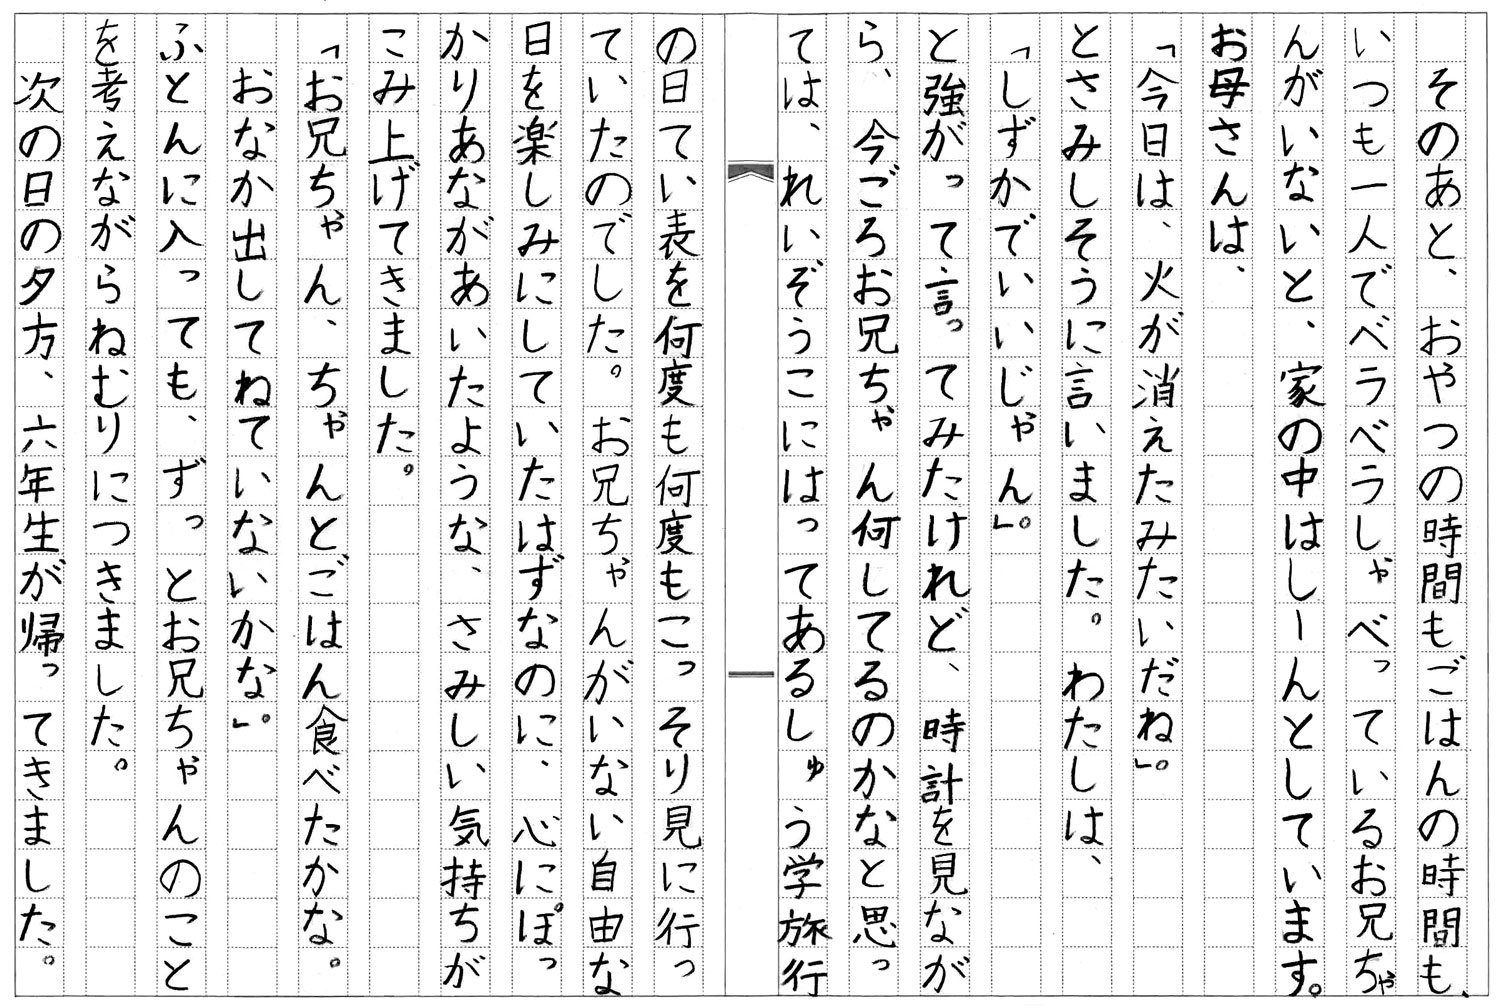 そのあと、おやつの時間もごはんの時間も、
いつも一人でベラベラしゃべっているお兄ちゃ
んがいないと、家の中はしーんとしています。
お母さんは、
「今日は、火が消えたみたいだね」。
とさみしそうに言いました。わたしは、
「しずかでいいじゃん」。
と強がって言ってみたけれど、時計を見なが
ら、今ごろお兄ちゃん何してるのかなと思っ
ては、れいぞうこにはってあるしゅう学旅行
の日てい表を何度も何度もこっそり見に行っ
ていたのでした。お兄ちゃんがいない自由な
日を楽しみにしていたはずなのに、心にぽっ
かりあながあいたような、さみしい気持ちが
こみ上げてきました。
「お兄ちゃん、ちゃんとごはん食べたかな。
おなか出してねていないかな」。
ふとんに入っても、ずっとお兄ちゃんのこと
を考えながらねむりにつきました。
次の日の夕方、六年生が帰ってきました。